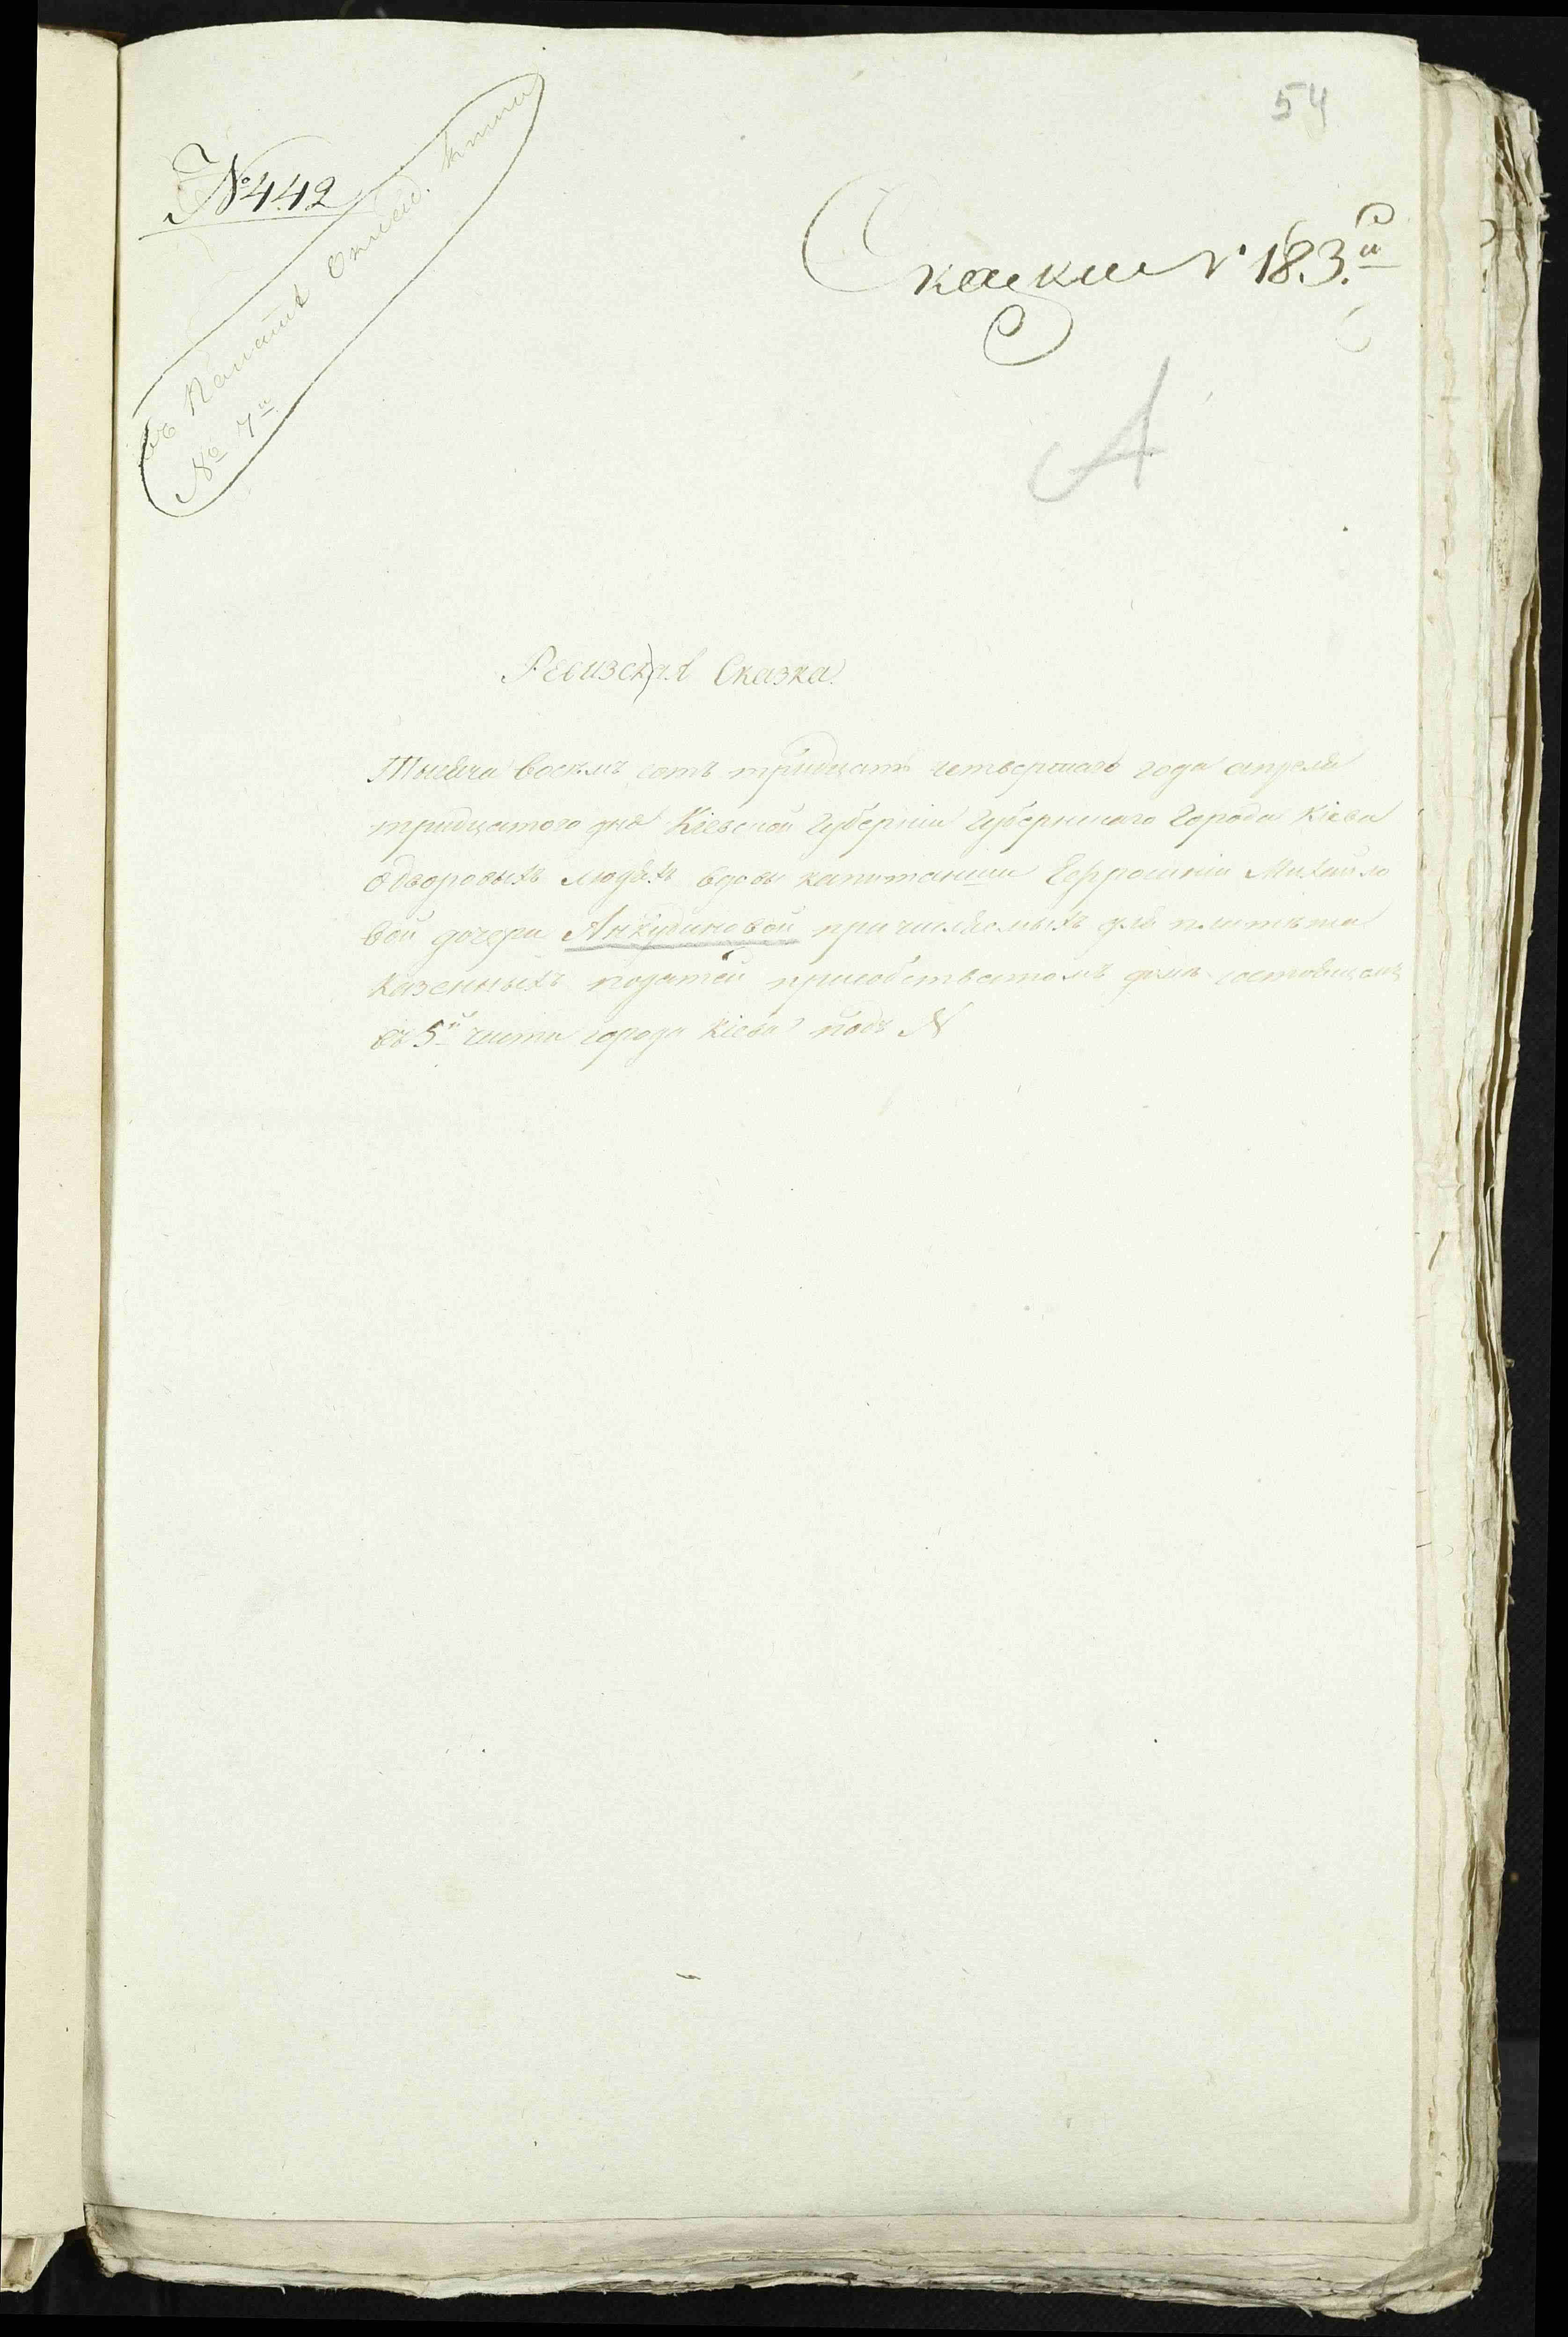 54
№ 442
въ Палатѣ опись. книги
№ 7й
Сказки № 183й
А
Ревизская Сказка.
Тысяча восемъ сотъ тридцать четвертаго года апреля
тридцатого дня Кіевской Губерніи Губернскаго Города Кіева
о дворовыхъ людяхъ вдовы капитанши Михайло
вой дочери Анкудиновой причисляемыхъ для платежа
казенныхъ податей при домъ состоящемъ
въ 5й части города Кіева подъ №